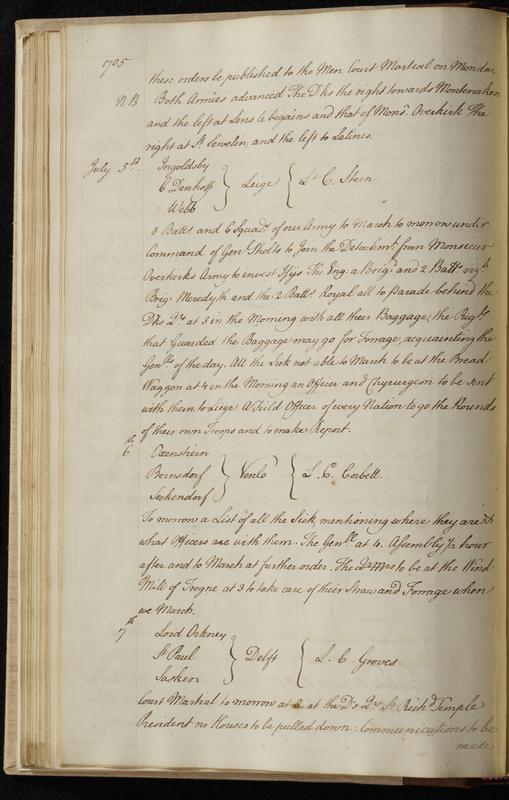 1705
these orders be published to the Men, Court Martial on Monday,
NB Both Armies advanced The Dks the right towards Montenaken
and the left at Lens le begains and that of Monsr. Overkirk The
right at St. Sevelen, and the left to Latines.
July 5th. Ingoldsby
C Denhoff } Leige { Lt. C. Stern
Webb
8 Batts. and 6 Squads. of our Army to March to morrow under
Command of Genl. Sholts to Join the Detachmt. from Monsieur
Overkirks Army to invest Huy The Eng: a Brigd. and 2 Batts. vizt.
Brigr. Meredyth and the 2 Batts. Royal all to Parade behind the
Dks Qrs. at 3 in the Morning with all their Baggage; the Regts.
that Guarded the Baggage may go for Forrage, acquainting the
Genlls. of the day. All the Sick not able to March to be at the Bread
Waggon at 4 in the Morning an Officer and Chyrurgeon to be sent
with them to Liege A Feild Officer of every Nation to go the Rounds
of their own Troops and to make Report.
6th Oxenstiern
Bernsdorf } Venlo { L. C. Corbett.
Seckendorf
To morrow a List of all the Sick, mentioning where they are &
what Officers are with them. The Genll. at 4. Assembly ½ hour
after and to March at further order. The Qr Mrs to be at the Wind
Mill of Trogne at 3 to take care of their Straw and Forrage when
we March.
7th Lord Orkney
St Paul } Delft { L. C. Groves
Sasken
Court Martial to morrow at 8 at the Ds. Qrs Sr. Richd. Temple
President no Houses to be pulled down: Communications to be
made